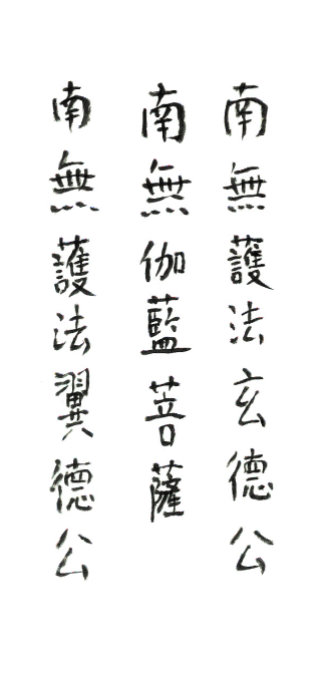 南無護法玄德公
南無伽藍菩薩
南無護法翼德公